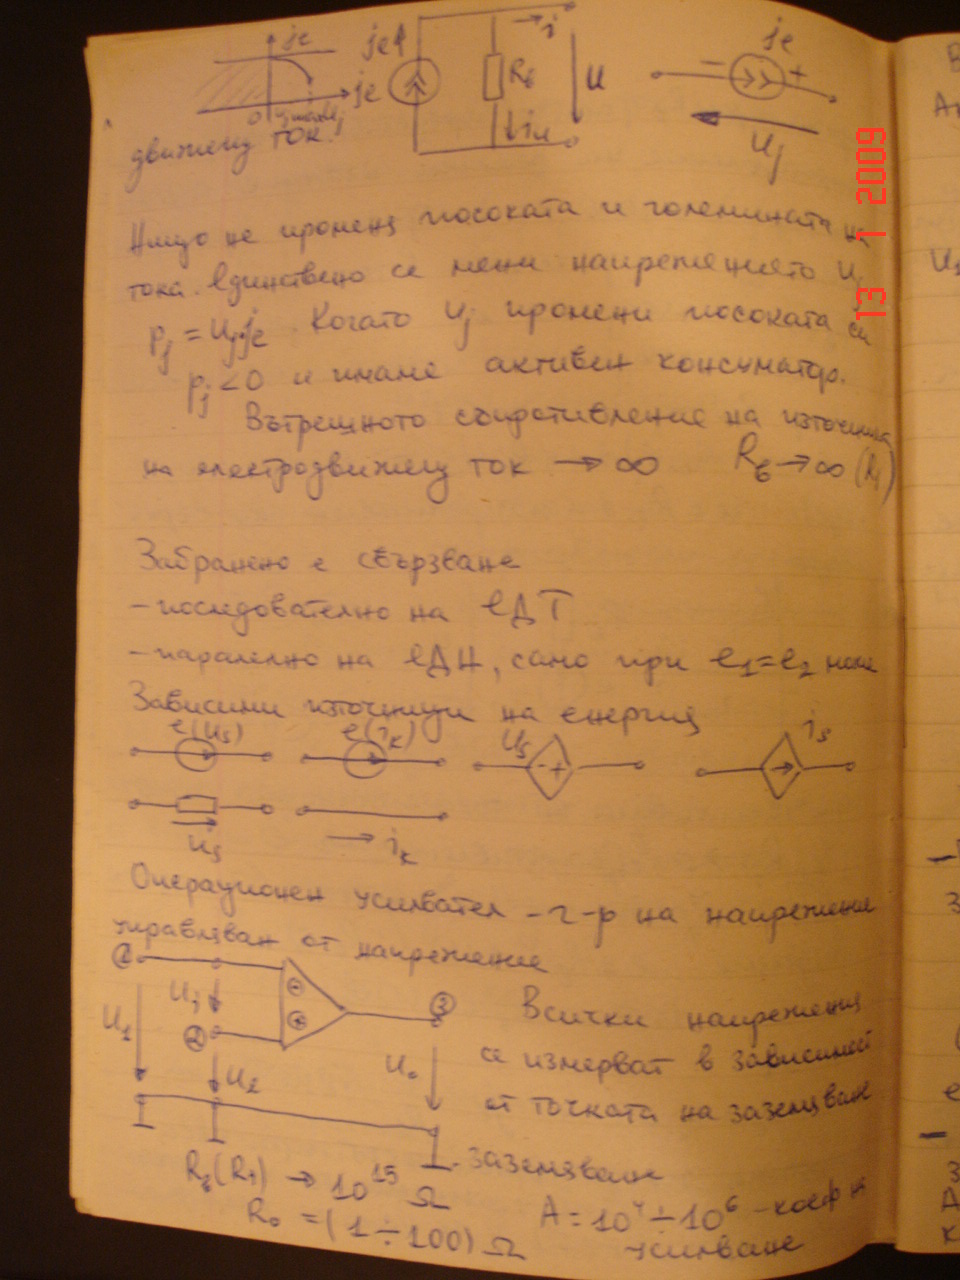 je
je
0
движещ ток.
je
Rв
i
iл
U
je
- +
Uj
13 1 2009
Нищо не променя посоката и големината на
тока. Единствено се мени напрежението U
Pj = Uj.je. Когато Uj промени посоката си
Pj < 0 и имаме активен консуматор.
Вътрешното съпротивление на източника
на електродвижещ ток → ∞ Rв → ∞ (Ri)
Забранено е свързване
- последователно на ЕДТ
- паралелно на ЕДН, само при e1 = e2 може
Зависими източници на енергия
e(us) e(ik) us is
- +
us ik
Операционен усилвател - г-р на напрежение
управляван от напрежение
1 2 3
U1 Uj U2 Uo
- +
Всички напрежения
се измерват в зависимост
от точката на заземяване
заземяване
→ 10^15 Ω
Ro = (1 ÷ 100) Ω
A = 10^4 ÷ 10^6 - коеф на
усилване